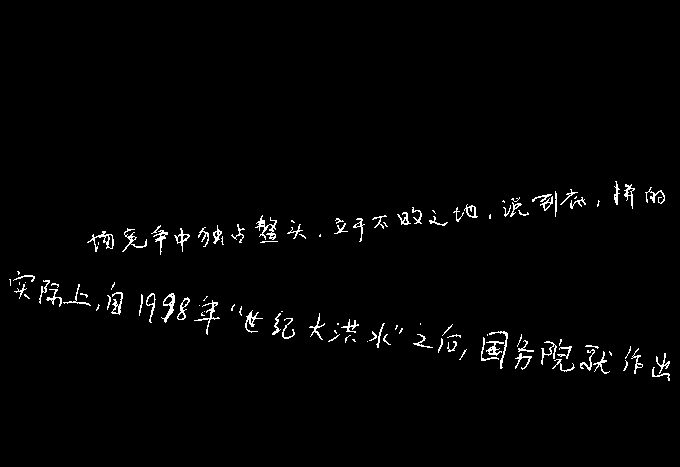 场竞争中独占鳌头，立于不败之地，说到底，拼的
实际上，自1998年“世纪大洪水”之后，国务院就作出